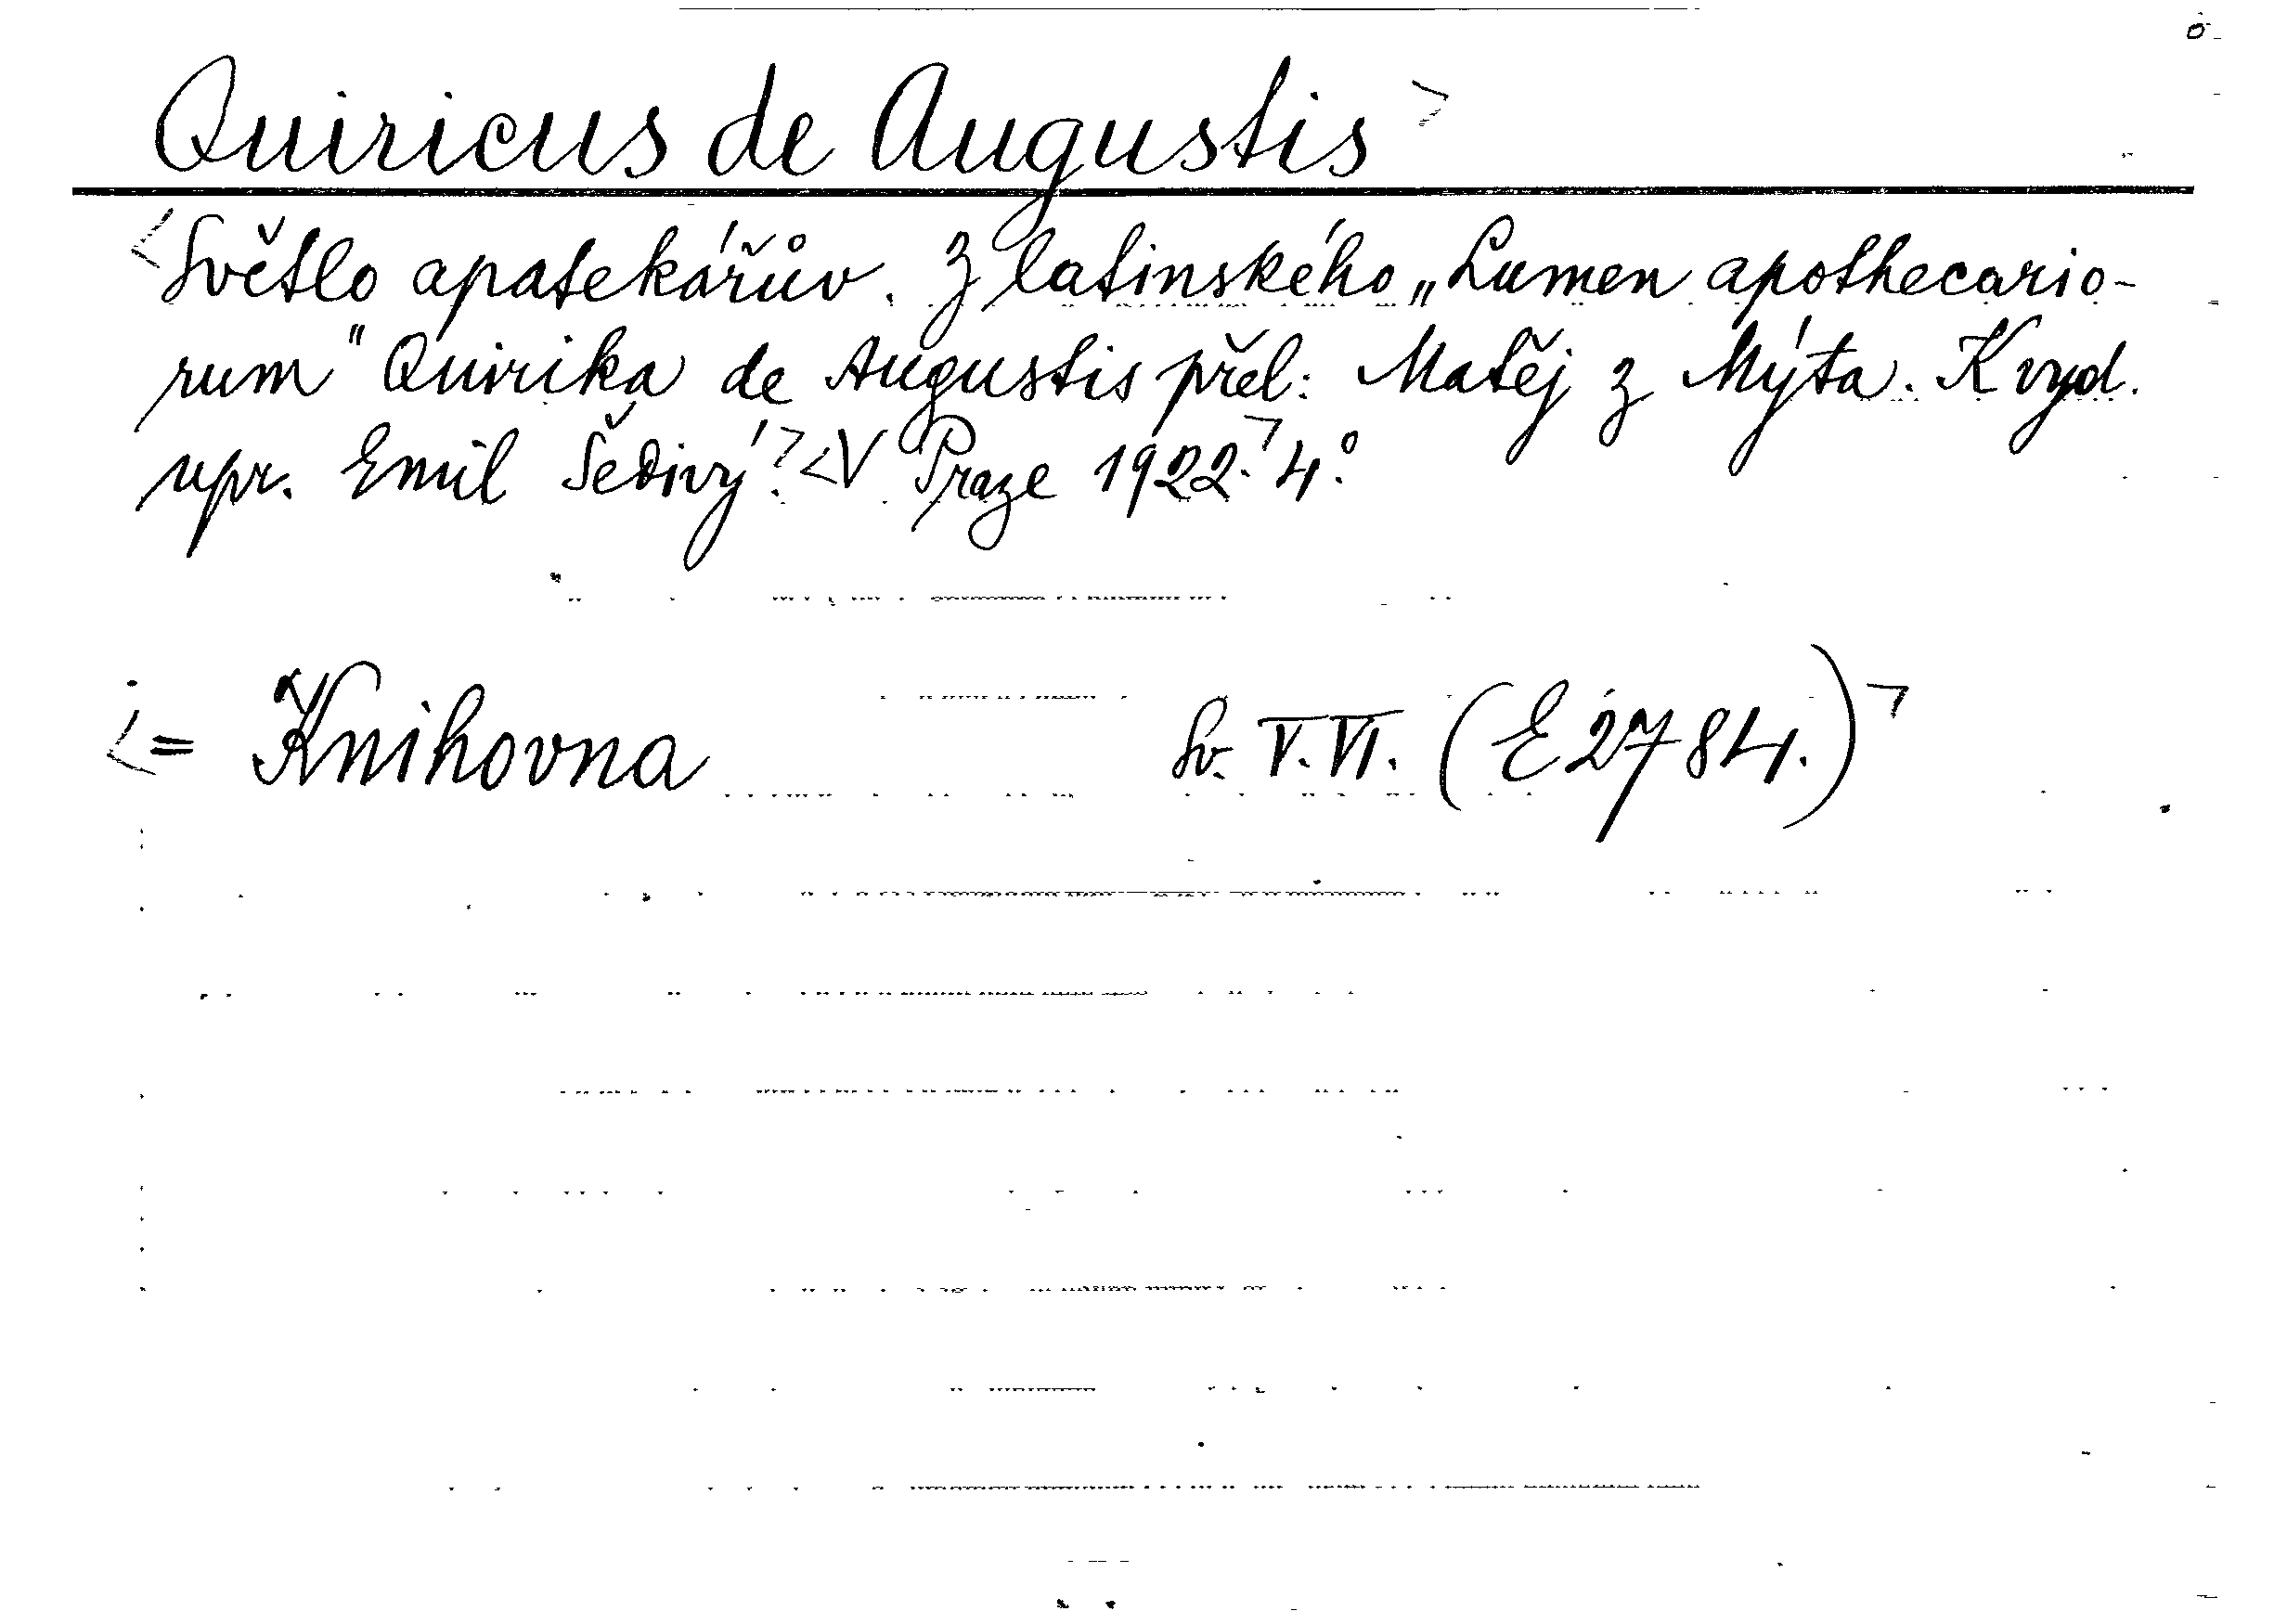 Quiricus de Augustis>
<Světlo apatekářův. Z latinského „Lumen apothecario-
rum" Quirika de Augustis přel: Matěj z Mýta. K vyd.
upr. Emil Šedivý.> <V Praze 1922.> 4.°
<= Knihovna Sv. V.VI. (E 2784.)>